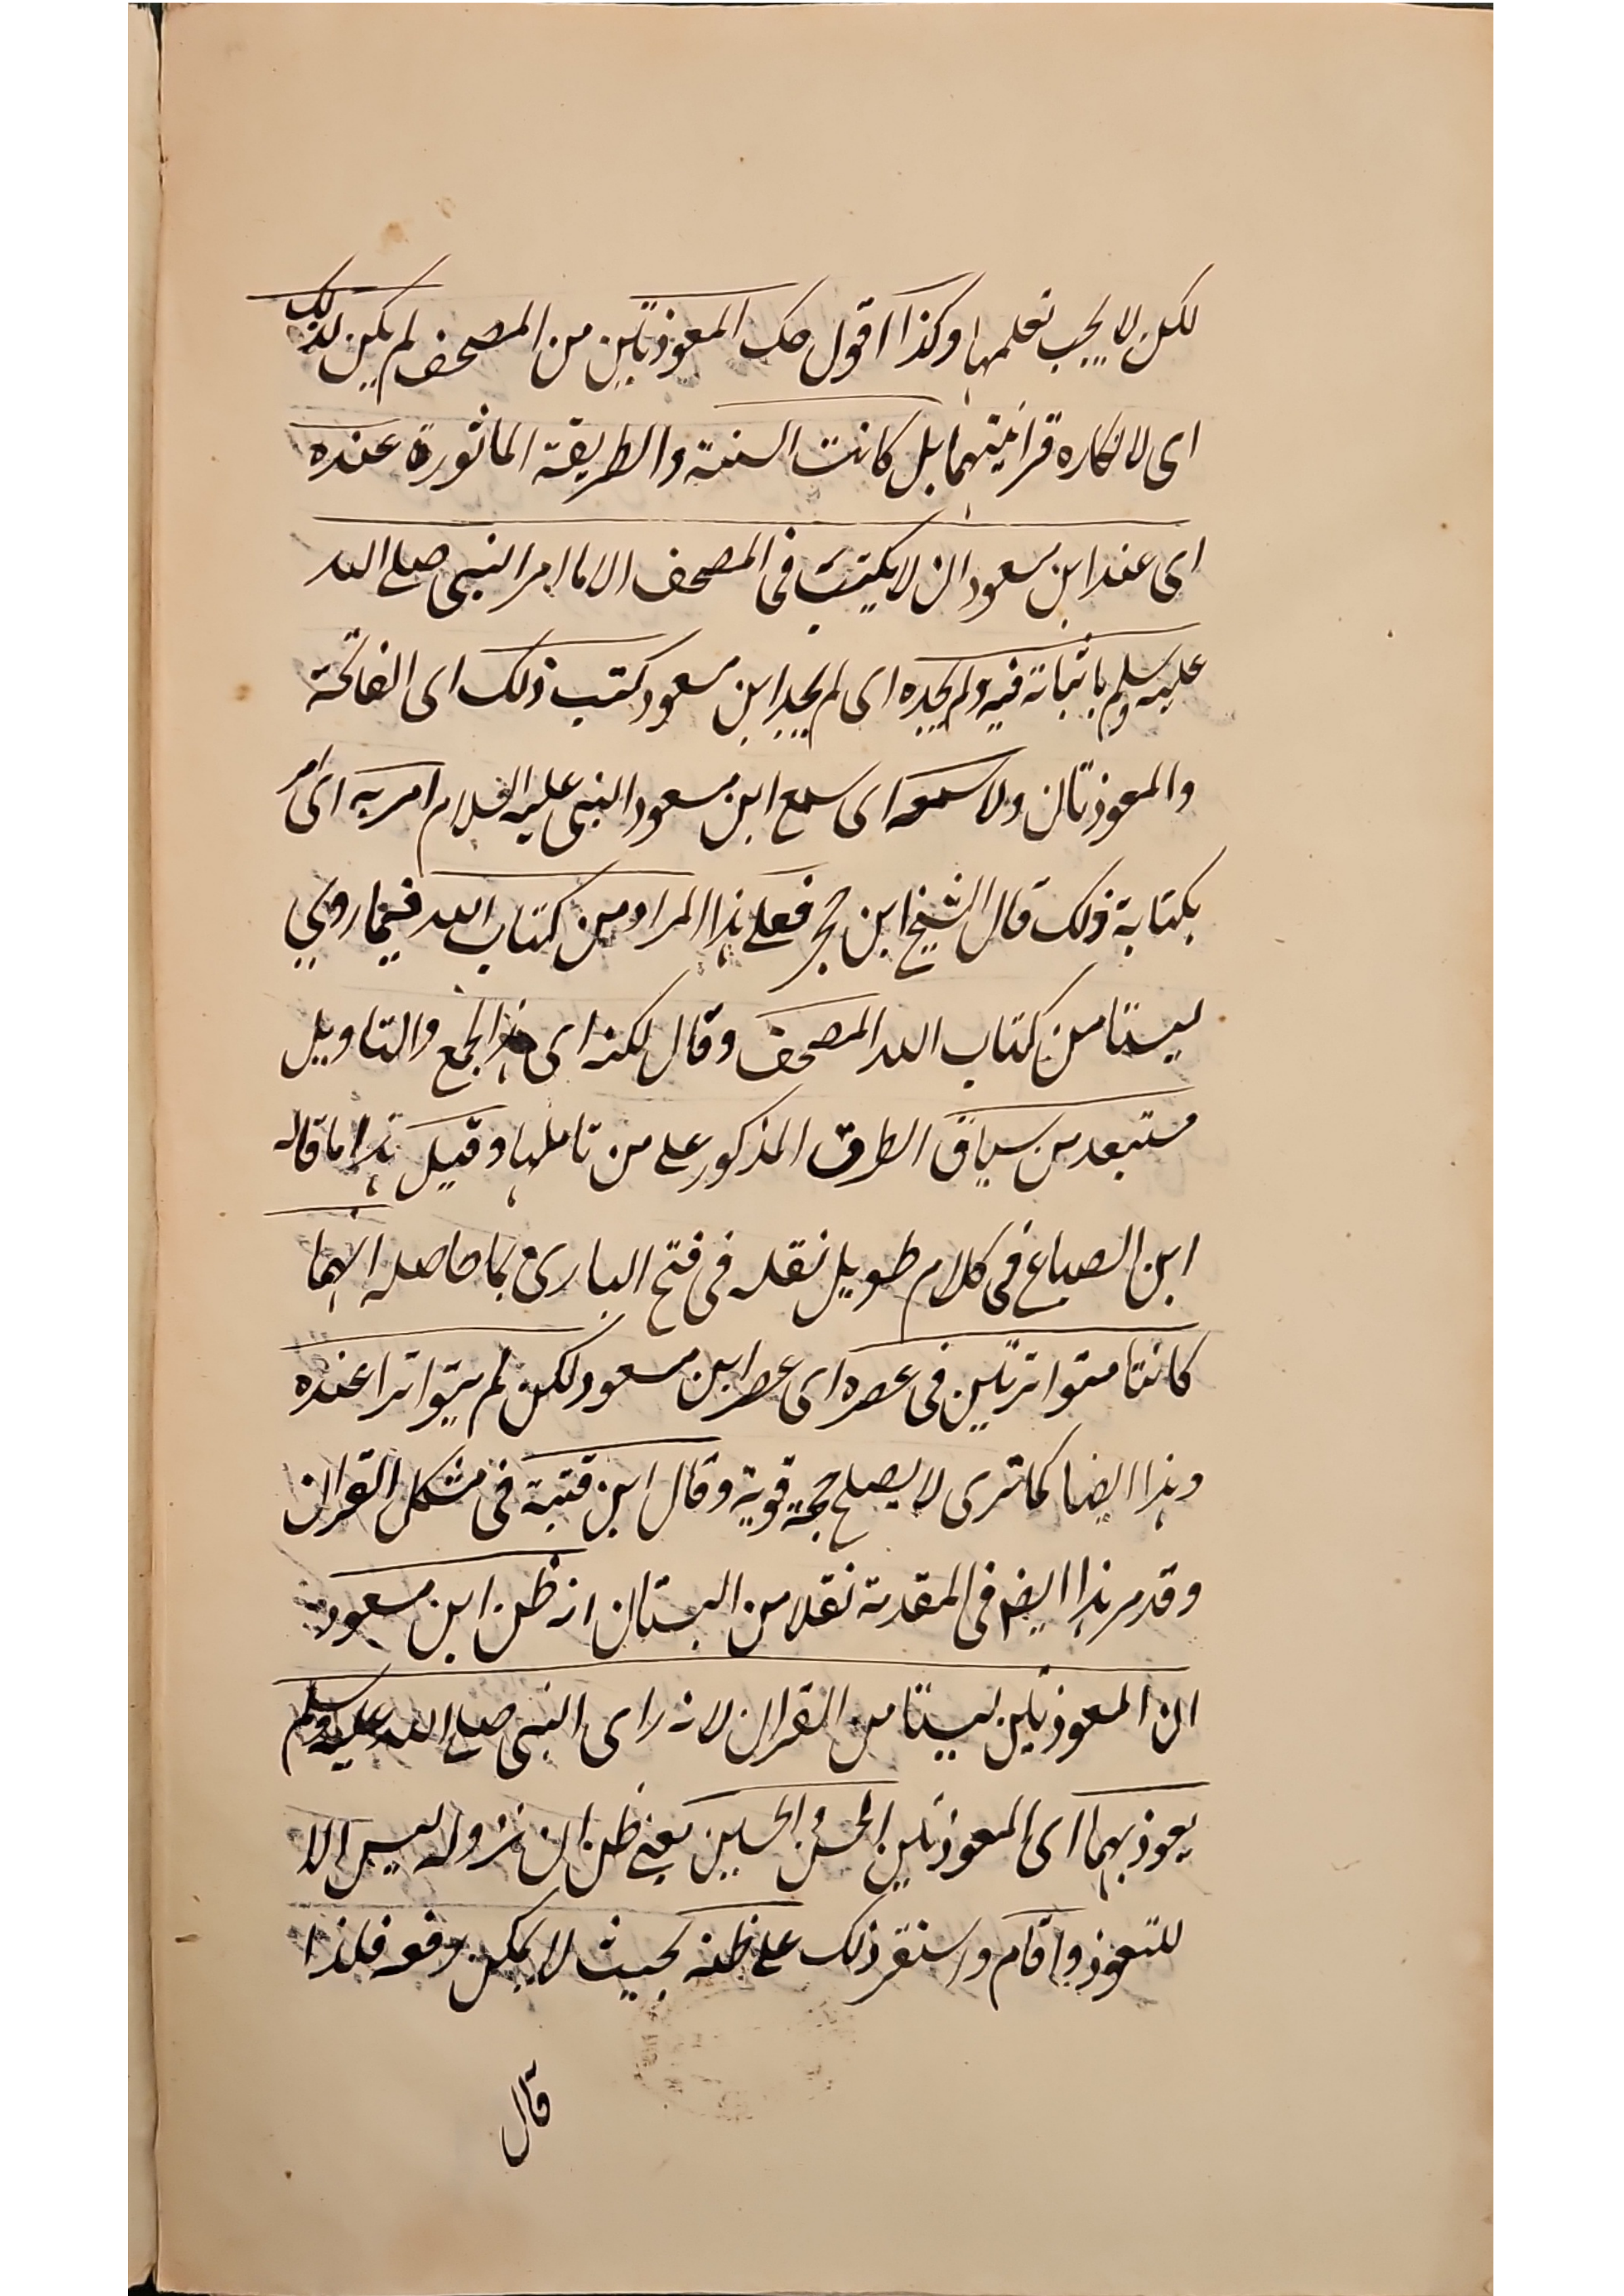 لكن لا يجب تعلمها وكذا اقول حك المعوذتين من المصحف لم يكن لذلك
اى لانكاره قرانيتهما بل كانت السنة والطريقة الماثورة عنده
اى عند ابن مسعود ان لا يكتب فى المصحف الا ما امر النبى صلى الله
عليه وسلم باثباته فيه ولم يجده اى لم يجد ابن مسعود كتب ذلك اى الفاتحة
والمعوذتان ولا سمعه اى سمع ابن مسعود النبى عليه السلام امر به اى امر
بكتابة ذلك قال الشيخ ابن حجر فعلى هذا المراد من كتاب الله فيما روي
ليستا من كتاب الله المصحف وقال لكنه اى هذا الجمع والتاويل
مستبعد من سياق الطرق المذكور على من تاملها وقيل هذا ما قاله
ابن الصباغ فى كلام طويل نقله فى فتح البارى بما حاصله انهما
كانتا متواترتين فى عصره اى عصر ابن مسعود لكن لم يتواترا عنده
وهذا ايضا كما ترى لا يصلح حجة قوية وقال ابن قتبة فى مشكل القران
وقد مر هذا ايضا فى المقدمة نقلا من البستان انه ظن ابن مسعود
ان المعوذتين ليستا من القران لانه راى النبى صلى الله عليه وسلم
يعوذ بهما اى المعوذتين الحسن والحسين يعنى ظن ان نزوله ليس الا
للتعوذ واقام واستقر ذلك على ظنه بحيث لا يمكن رفعه فلذا
قال